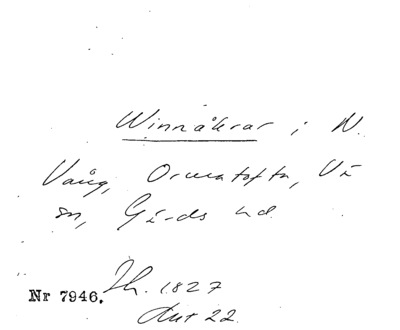 Winnåkrar i N.
Vång, Ormatofta, Vä
sn, Gärds hd.
Nr 7946. Jh. 1827
Akt 22.